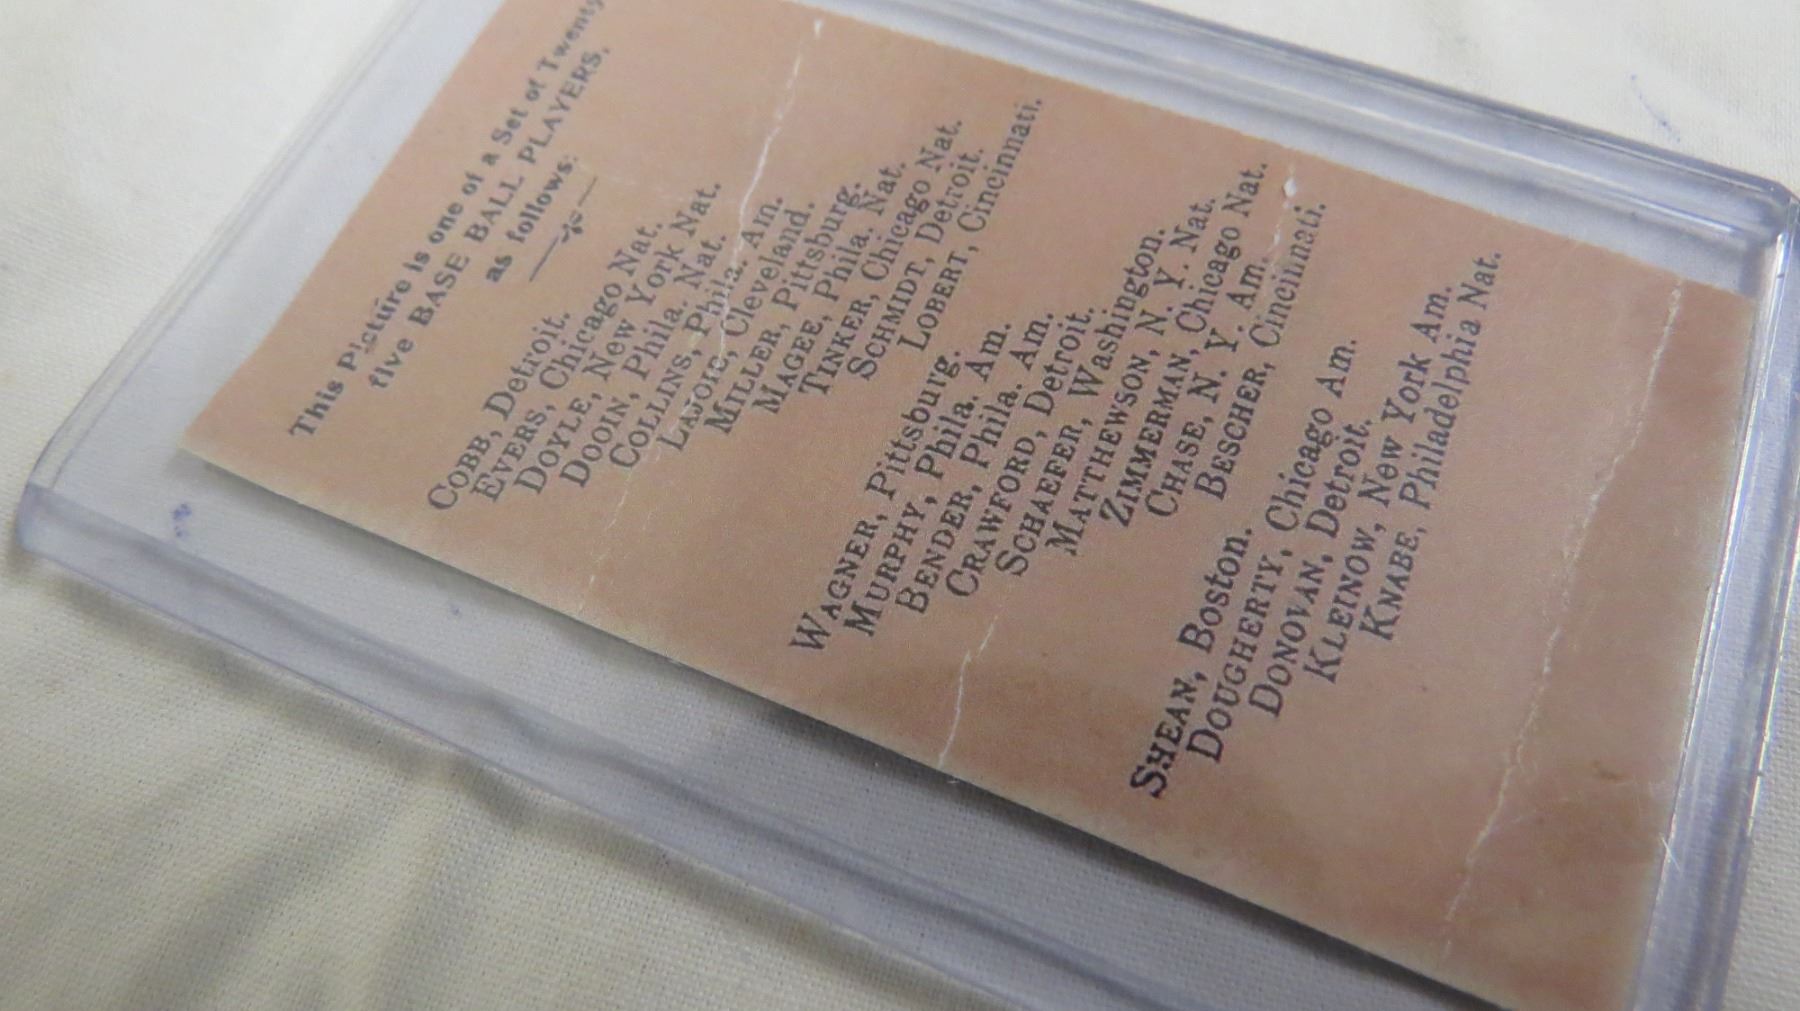 This Picture is one of a Set of Twenty
five BASE BALL PLAYERS,
as follows:
COBB, Detroit.
EVERS, Chicago Nat.
DOYLE, New York Nat.
DOOIN, Phila. Nat.
COLLINS, Phila. Am.
LAJOIE, Cleveland.
MILLER, Pittsburg.
MAGEE, Phila. Nat.
TINKER, Chicago Nat.
SCHMIDT, Detroit.
LOBERT, Cincinnati.
WAGNER, Pittsburg.
MURPHY, Phila. Am.
BENDER, Phila. Am.
CRAWFORD, Detroit.
SCHAEFER, Washington.
MATTHEWSON, N. Y. Nat.
ZIMMERMAN, Chicago Nat.
CHASE, N. Y. Am.
BESCHER, Cincinnati.
SHEAN, Boston.
DOUGHERTY, Chicago Am.
DONOVAN, Detroit.
KLEINOW, New York Am.
KNABE, Philadelphia Nat.